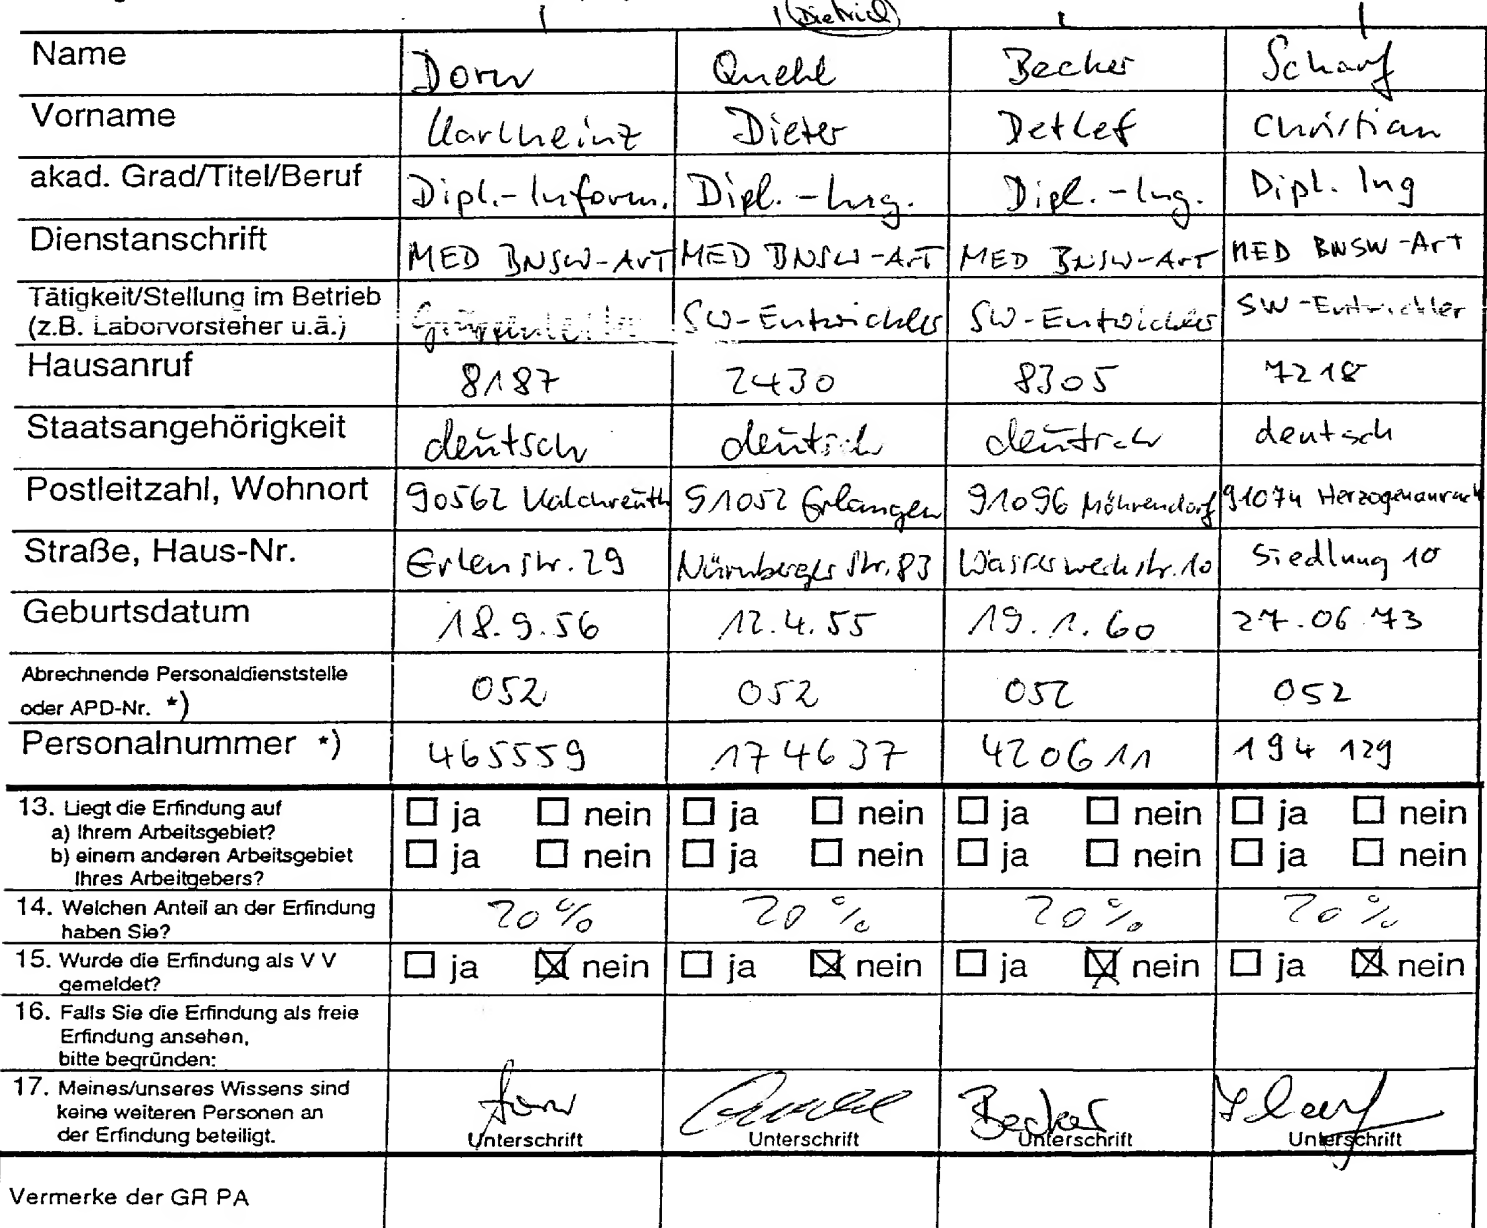 (Dietrich)
Name Dorn Quehl Becker Scharf
Vorname Karlheinz Dieter Detlef Christian
akad. Grad/Titel/Beruf Dipl.-Inform. Dipl.-Ing. Dipl.-Ing. Dipl. Ing
Dienstanschrift MED BNSW-ArT MED BNSW-ArT MED BNSW-ArT MED BNSW-ArT
Tätigkeit/Stellung im Betrieb
(z.B. Laborvorsteher u.ä.) Gruppenleiter SW-Entwickler SW-Entwickler SW-Entwickler
Hausanruf 8187 2430 8305 7218
Staatsangehörigkeit deutsch deutsch deutsch deutsch
Postleitzahl, Wohnort 90562 Kalchreuth 91052 Erlangen 91096 Möhrendorf 91074 Herzogenaurach
Straße, Haus-Nr. Erlenstr. 29 Nürnberger Str. 83 Wasserwerkstr. 10 Siedlung 10
Geburtsdatum 18.9.56 12.4.55 19.1.60 27.06.73
Abrechnende Personaldienststelle
oder APD-Nr. *) 052 052 052 052
Personalnummer *) 465559 174637 420611 194 129
13. Liegt die Erfindung auf
a) Ihrem Arbeitsgebiet? ja nein ja nein ja nein ja nein
b) einem anderen Arbeitsgebiet ja nein ja nein ja nein ja nein
Ihres Arbeitgebers?
14. Welchen Anteil an der Erfindung 20% 20% 20% 20%
haben Sie?
15. Wurde die Erfindung als V V ja nein ja nein ja nein ja nein
gemeldet?
16. Falls Sie die Erfindung als freie
Erfindung ansehen,
bitte begründen:
17. Meines/unseres Wissens sind
keine weiteren Personen an Dorn Quehl Becker Scharf
der Erfindung beteiligt. Unterschrift Unterschrift Unterschrift Unterschrift
Vermerke der GR PA